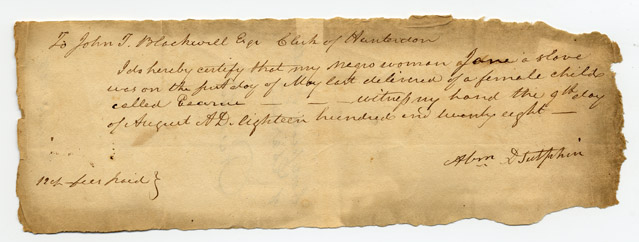 To John T. Blackwell Esqr Clerk of Hunterdon
I do hereby certify that my negro woman Jane a slave
was on the first day of May last delivered of a female child
called — — — witness my hand the 9th day
of August A D. Eighteen hundred and twenty eight —
Abm D Sutphin
fees paid }